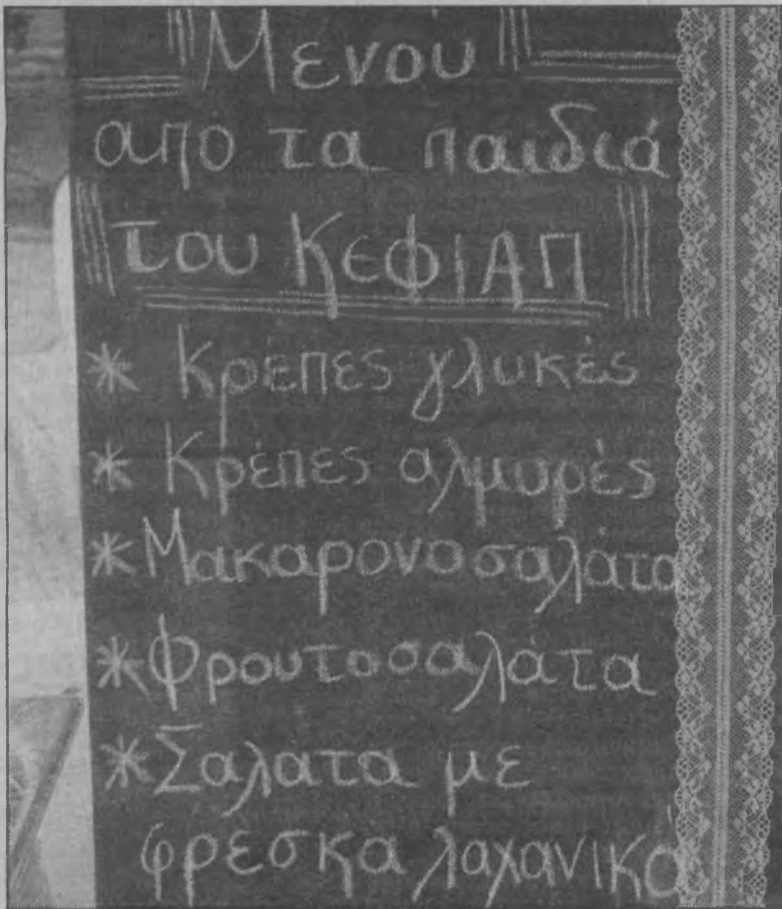 Μενού
από τα παιδιά
του ΚΕΦΙΑΠ
* Κρέπες γλυκές
* Κρέπες αλμυρές
* Μακαρονοσαλάτα
* Φρουτοσαλάτα
* Σαλάτα με
φρέσκα λαχανικά